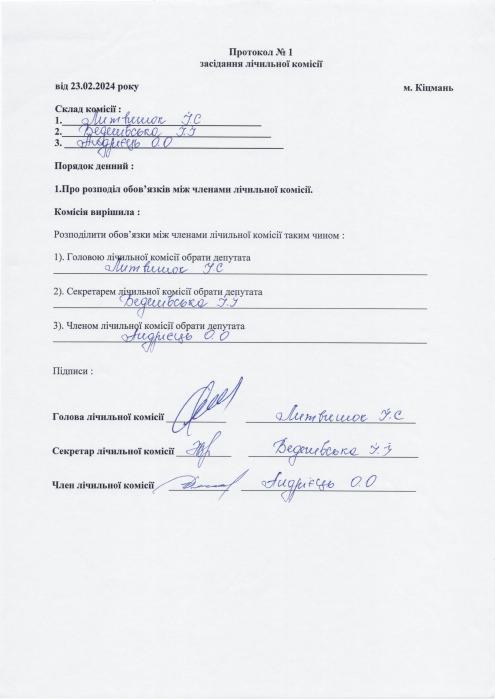 Протокол № 1
засідання лічильної комісії
від 23.02.2024 року м. Кіцмань
Склад комісії :
1. Литвинюк І.С
2. Ведешівська І.І
3. Андрієць О.О
Порядок денний :
1.Про розподіл обов’язків між членами лічильної комісії.
Комісія вирішила :
Розподілити обов'язки між членами лічильної комісії таким чином :
1). Головою лічильної комісії обрати депутата
Литвинюк І.С
2). Секретарем лічильної комісії обрати депутата
Ведешівська І.І
3). Членом лічильної комісії обрати депутата
Андрієць О.О
Підписи :
Голова лічильної комісії Литвинюк І.С
Секретар лічильної комісії Ведешівська І.І
Член лічильної комісії Андрієць О.О